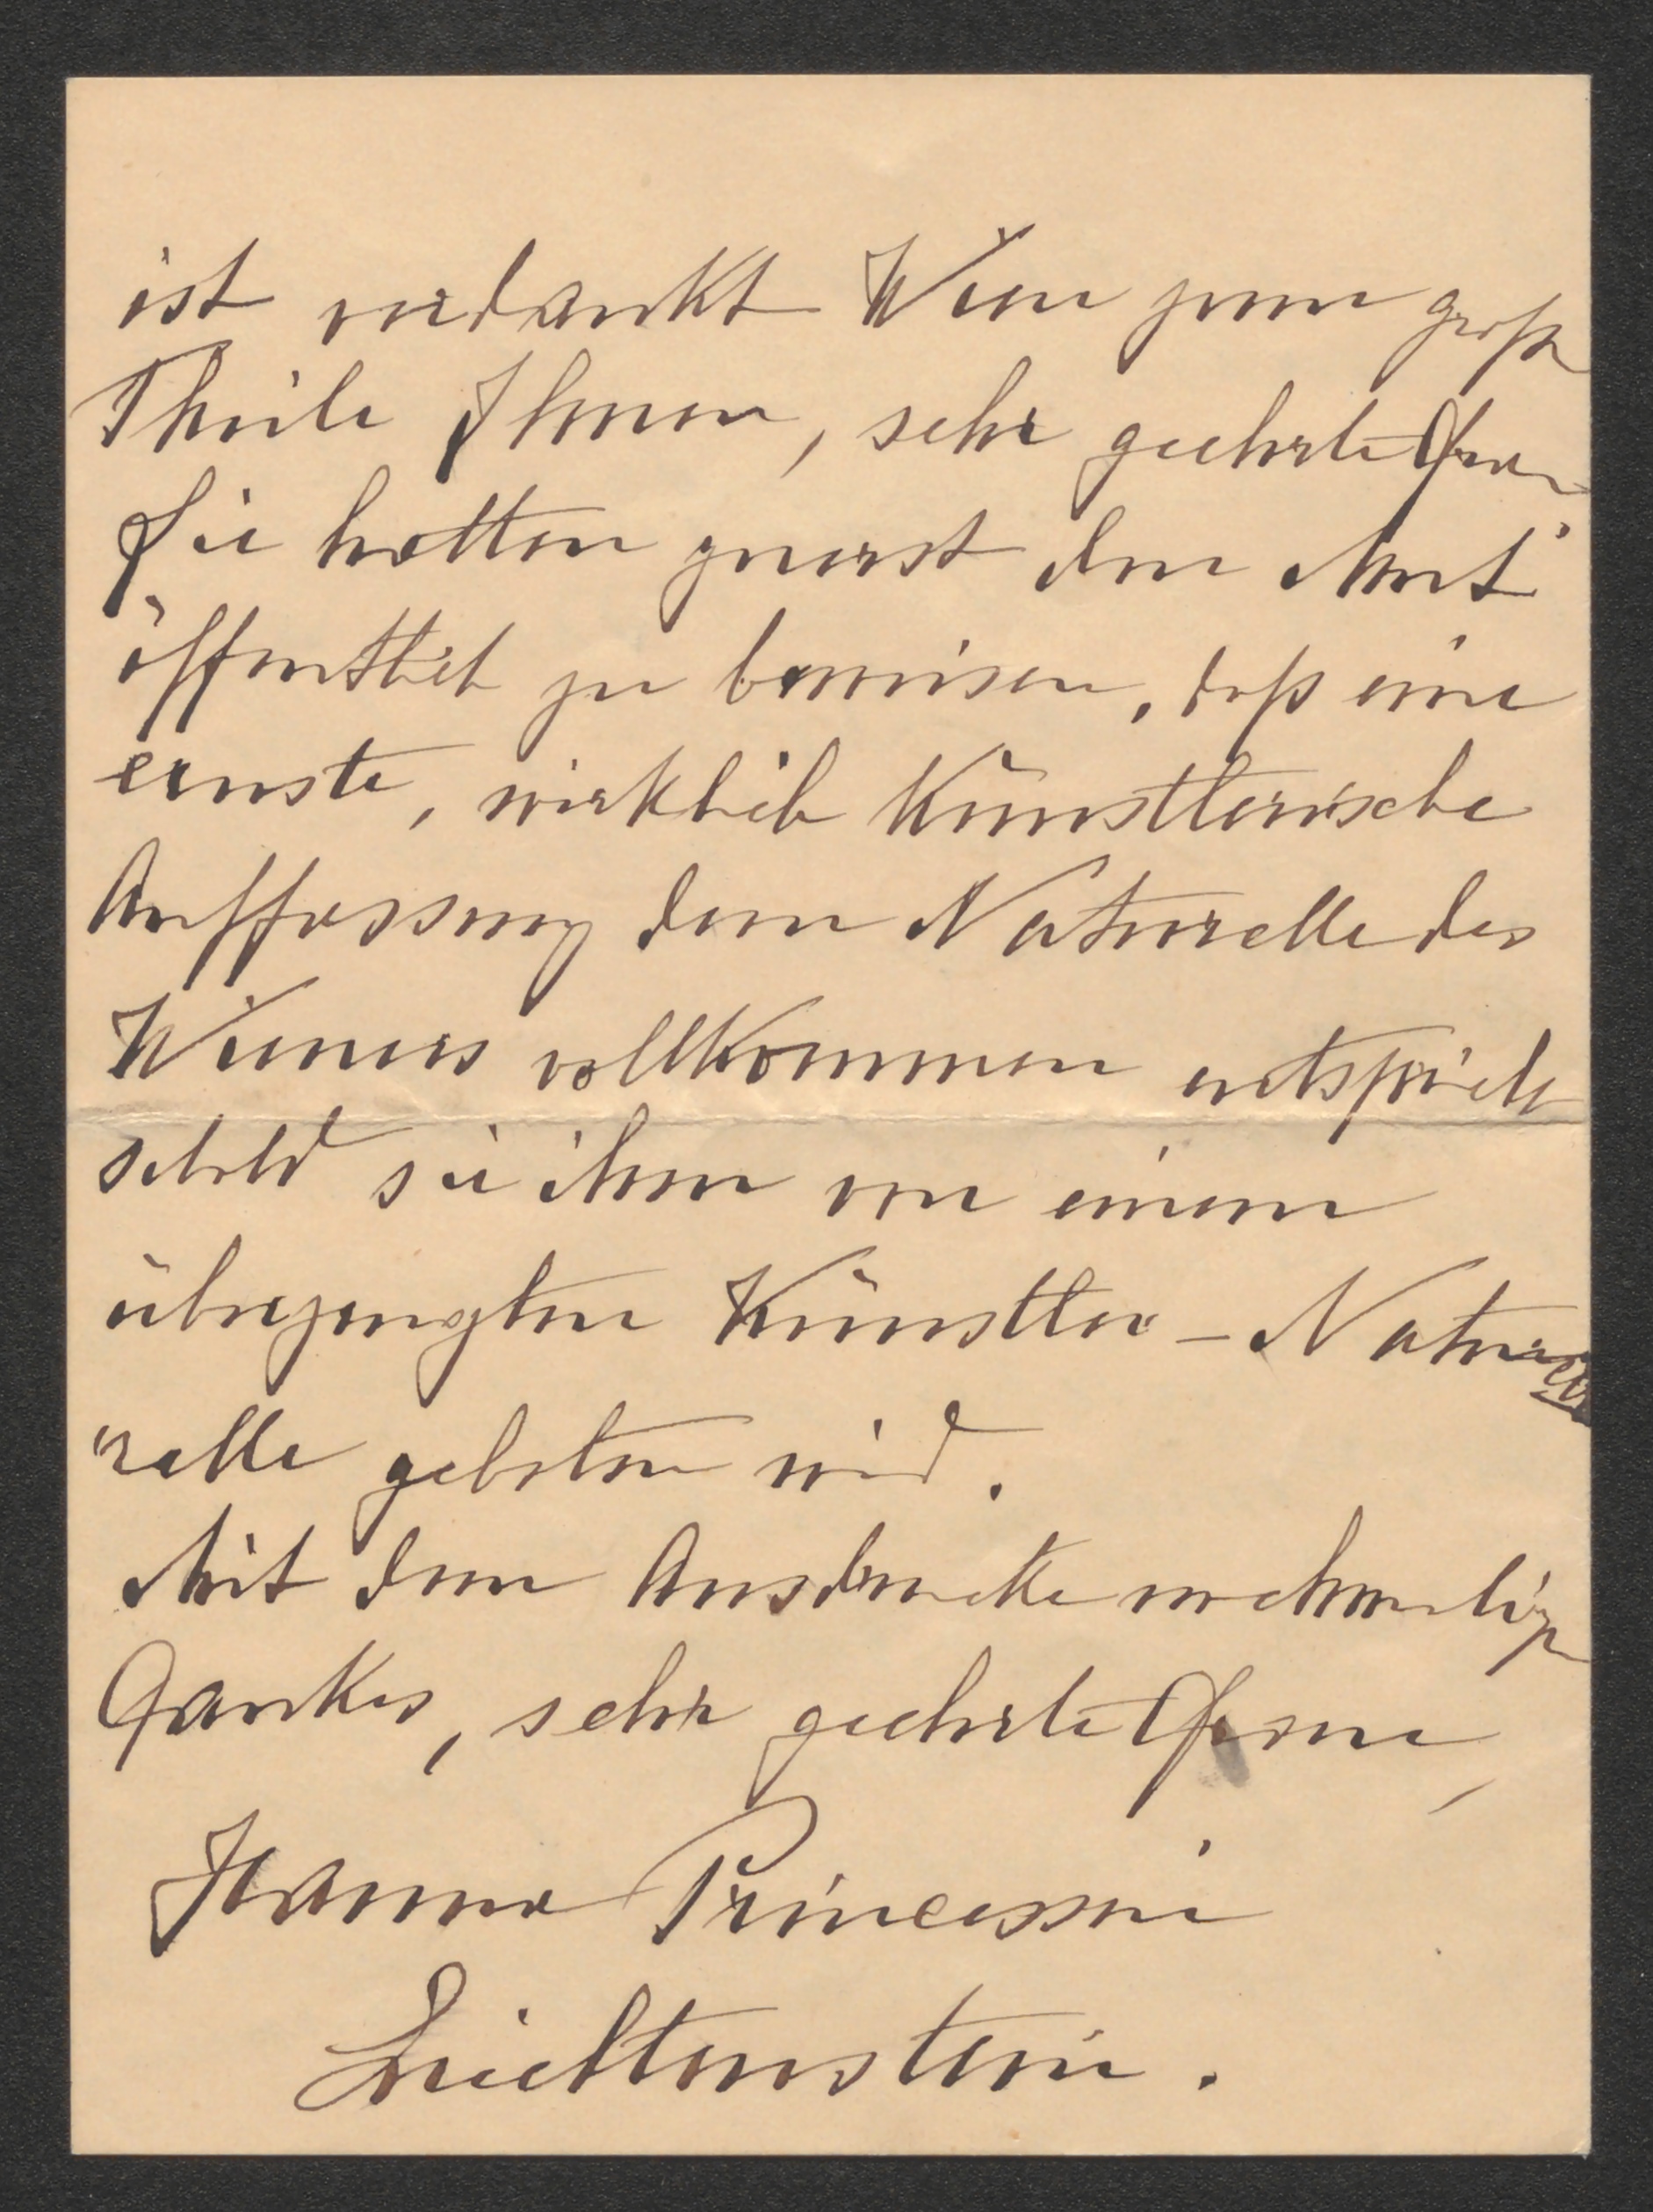 ist verdankt Wien zum große
Theile Ihnen, sehr geehrte Frau
Sie hatten zuerst den Mut
öffentlich zu beweisen, daß eine
ernste, wirklich künstlerische
Auffassung dem Naturelle des
Wieners vollkommen entspricht
sobald sie ihm von einem
überzeugten Künstler-Natu
"relle geboten wird.
Mit dem Ausdrucke nochmalige
Dankes, sehr geehrte Frau,
Hanna Princessin
Liechtenstein.